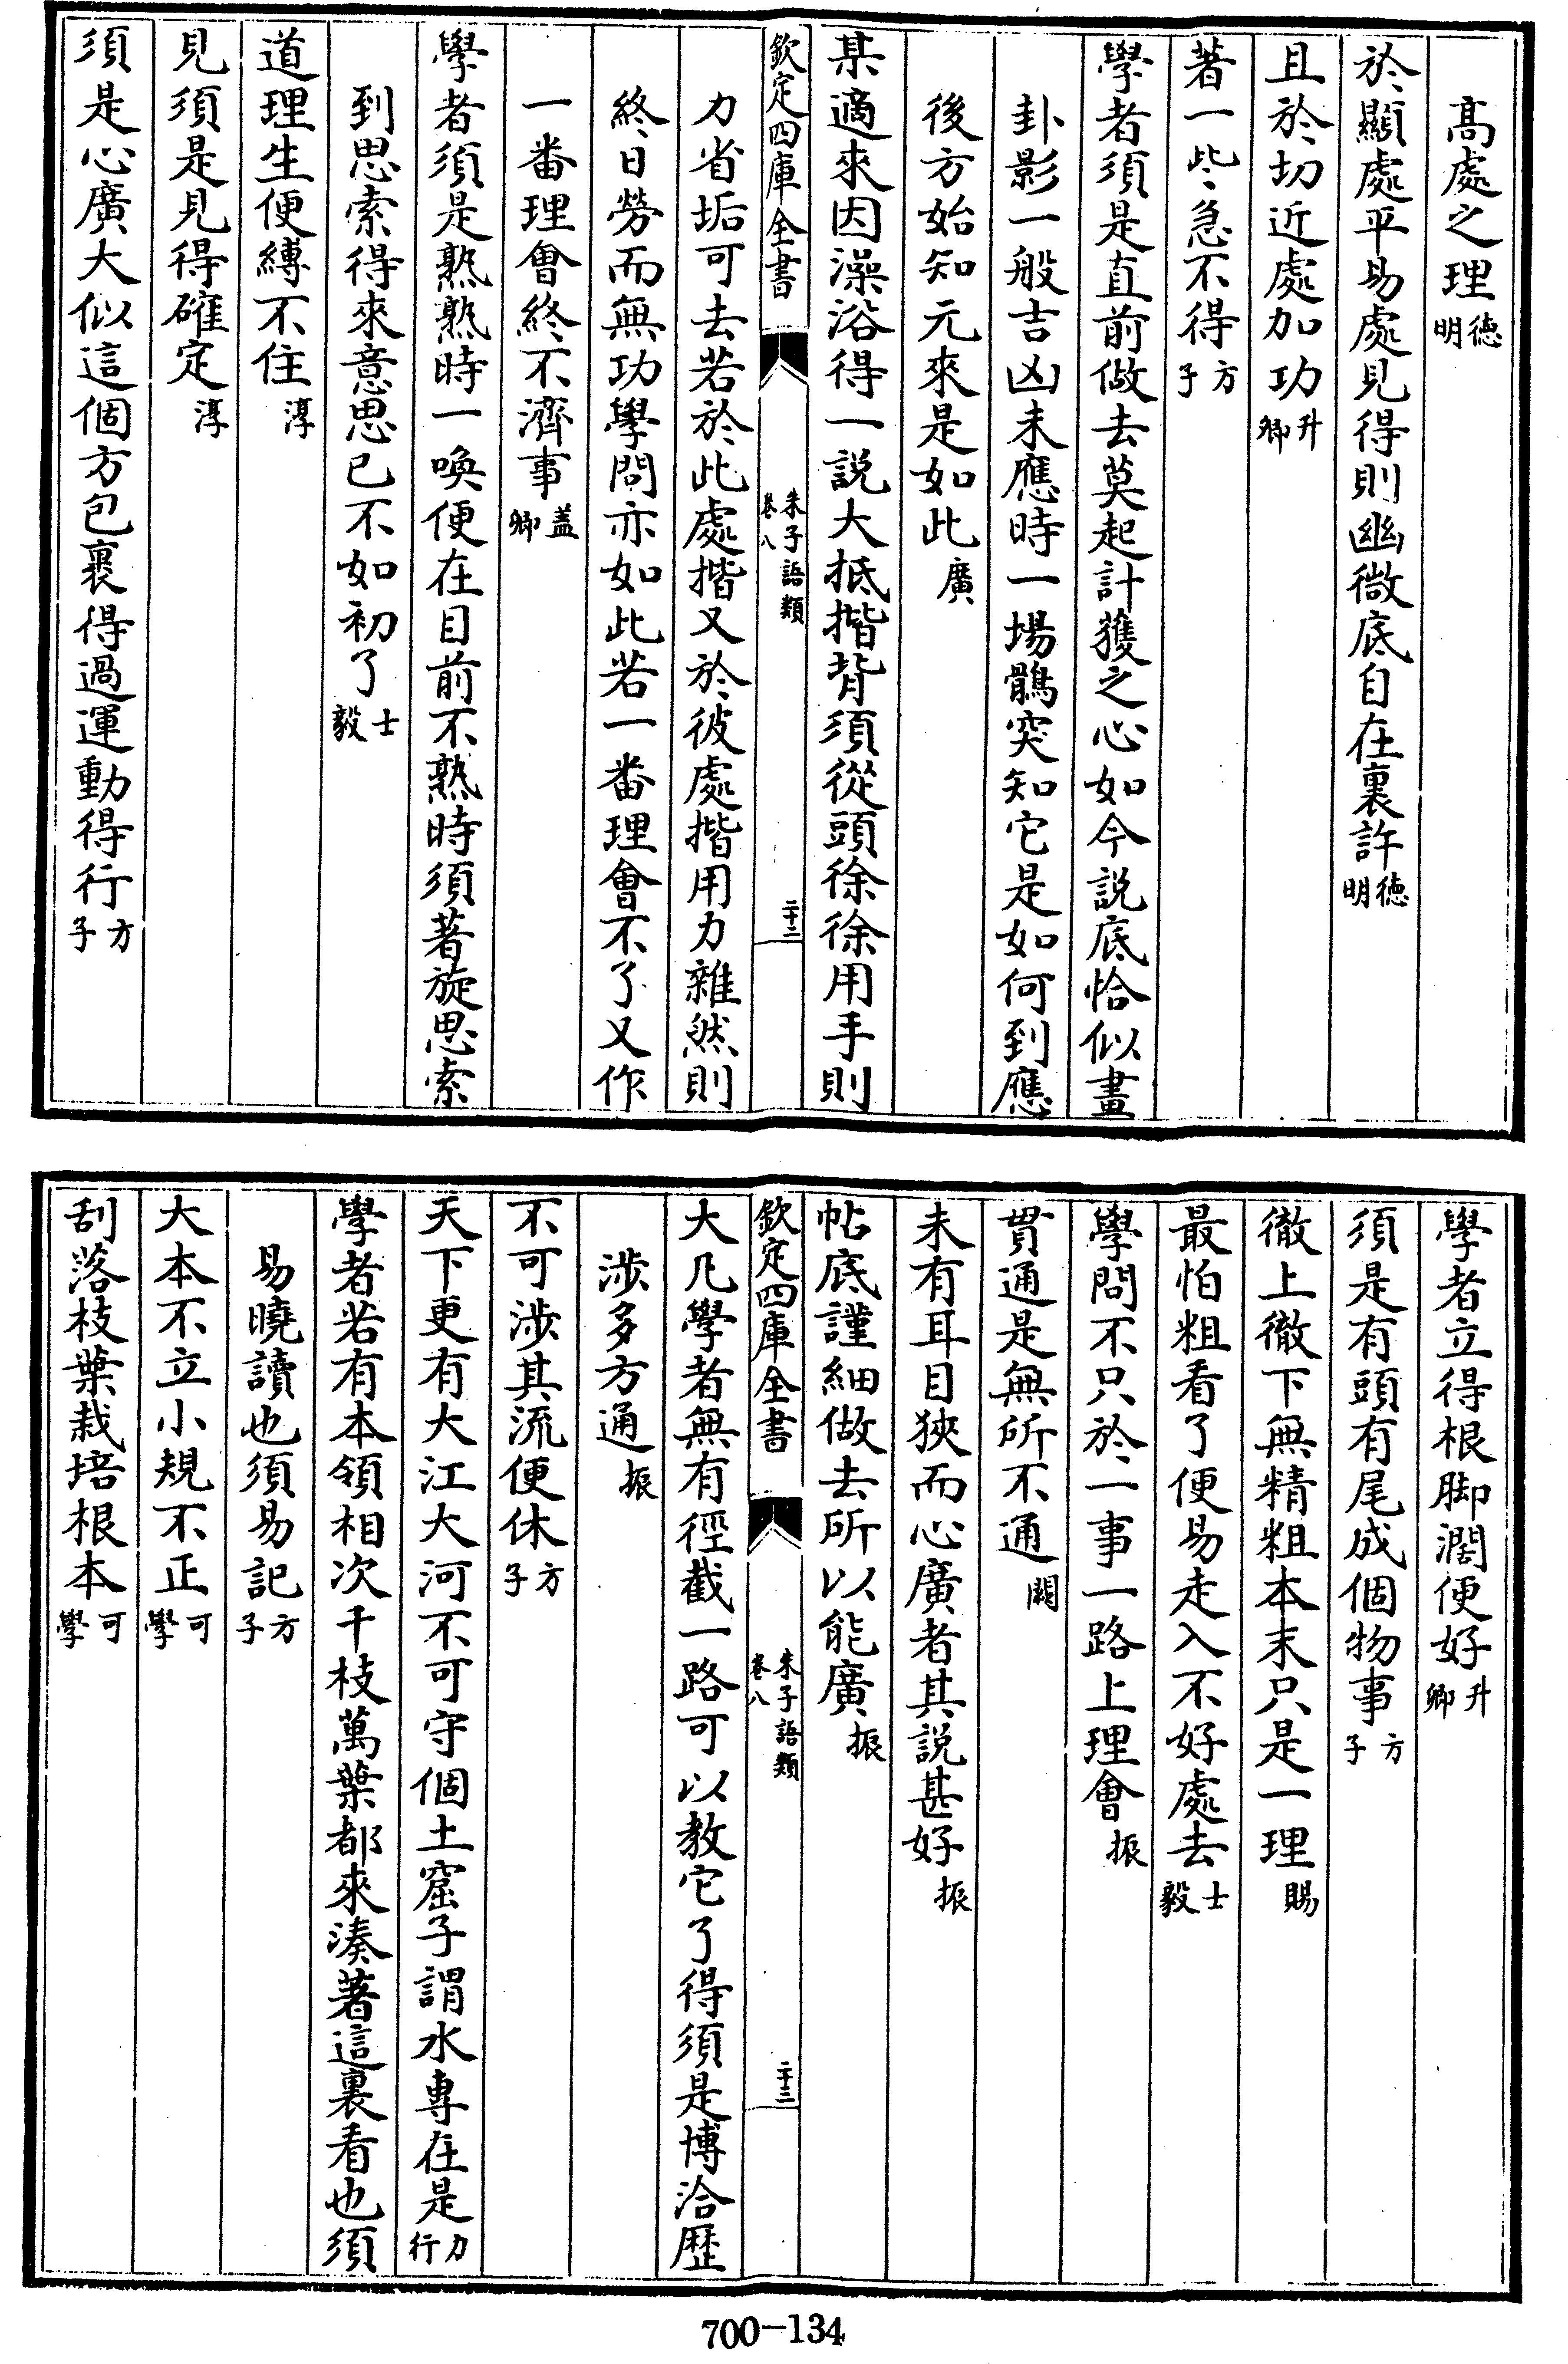 高處之理德明
於顯處平易處見得則幽微底自在裏許德明
且於切近處加功升卿
著一些急不得方子
學者須是直前做去莫起計獲之心如今說底恰似畫
卦影一般吉凶未應時一場鶻突知它是如何到應
後方始知元來是如此廣
某適來因澡浴得一說大抵揩背須從頭徐徐用手則
欽定四庫全書
朱子語類
卷八
二十二
力省垢可去若於此處揩又於彼處揩用力雜然則
終日勞而無功學問亦如此若一番理會不了又作
一番理會終不濟事蓋卿
學者須是熟熟時一喚便在目前不熟時須著旋思索
到思索得來意思已不如初了士毅
道理生便縛不住淳
見須是見得確定淳
須是心廣大似這個方包裹得過運動得行方子
學者立得根脚濶便好升卿
須是有頭有尾成個物事方子
徹上徹下無精粗本末只是一理賜
最怕粗看了便易走入不好處去士毅
學問不只於一事一路上理會振
貫通是無所不通闕
未有耳目狹而心廣者其說甚好振
帖底謹細做去所以能廣振
欽定四庫全書
朱子語類
卷八
二十三
大凡學者無有徑截一路可以教它了得須是博洽歷
涉多方通振
不可涉其流便休方子
天下更有大江大河不可守個土窟子謂水專在是力行
學者若有本領相次千枝萬葉都來湊著這裏看也須
易曉讀也須易記方子
大本不立小規不正可學
刮落枝葉栽培根本可學
700-134